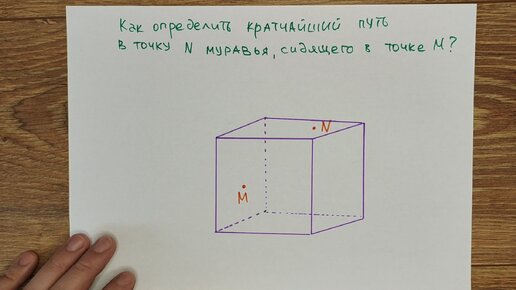 Как определить кратчайший путь
в точку N муравья, сидящего в точке М?
N
М